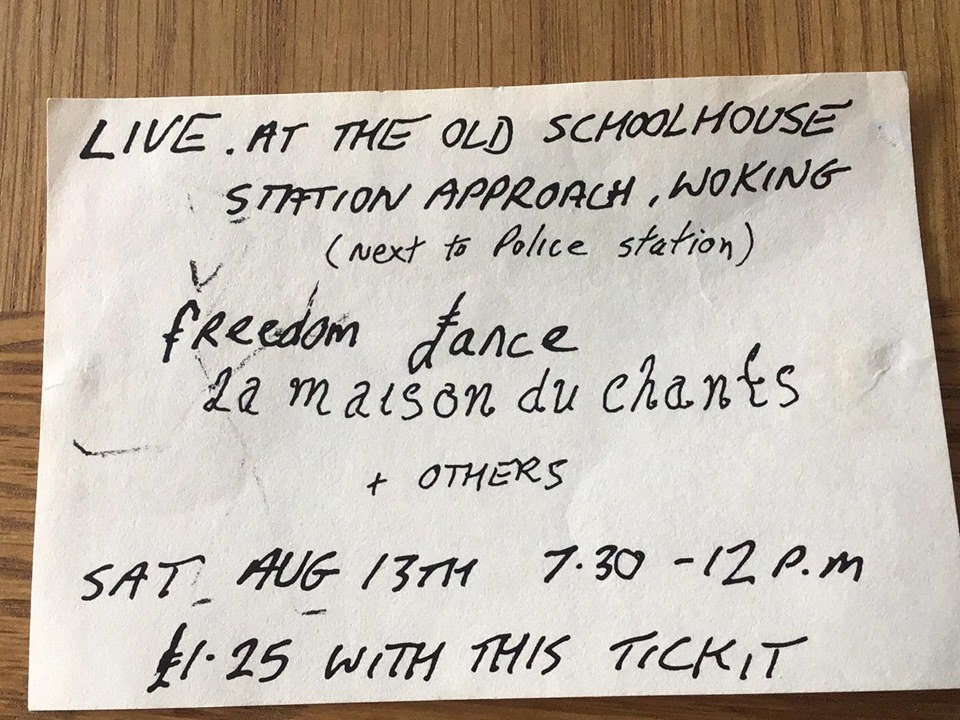 LIVE. AT THE OLD SCHOOLHOUSE
STATION APPROACH, WOKING
(Next to Police station)
freedom dance
La maison du chants
+ OTHERS
SAT AUG 13TH 7.30 - 12 P.M
£1.25 WITH THIS TICKIT